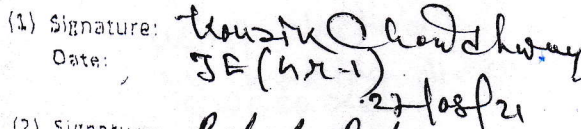 (1) Signature: Kousik Chowdhury
Date: JE (Gr-1)
27/08/21
(2) Signatu